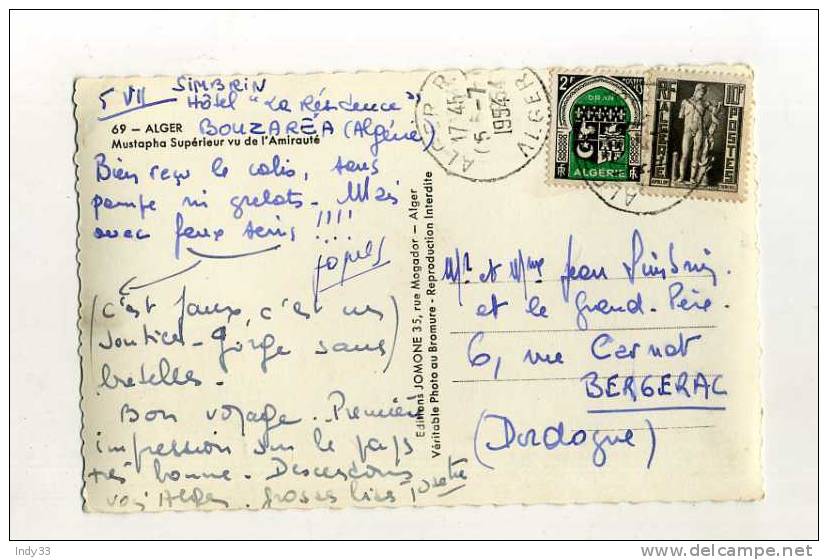 SIMBRIN
5 VII Hôtel "La Résidence"
69 - ALGER BOUZARÉA (Algérie)
Mustapha Supérieur vu de l'Amirauté
Bien reçu le colis, sans
pompe ni grelots. Mais
avec faux seins !!!!
(c'est faux, c'est un
soutien-gorge sans)
bretelles.
Bon voyage. Première
impression sur le pays
très bonne. Descendons
voir Alger. grosses bises
Editions JOMONE 35, rue Mogador - Alger
Véritable Photo au Bromure - Reproduction Interdite
ALGER R.P.
17H45
5-7
1954
ALGER
2F POSTES
ORAN
ALGERIE
RF 10F
ALGERIE
POSTES
Mr et Mme Jean Simbrin.
et le Grand-Père.
6, rue Carnot
BERGERAC
(Dordogne)
Indy33
www.delcampe.net